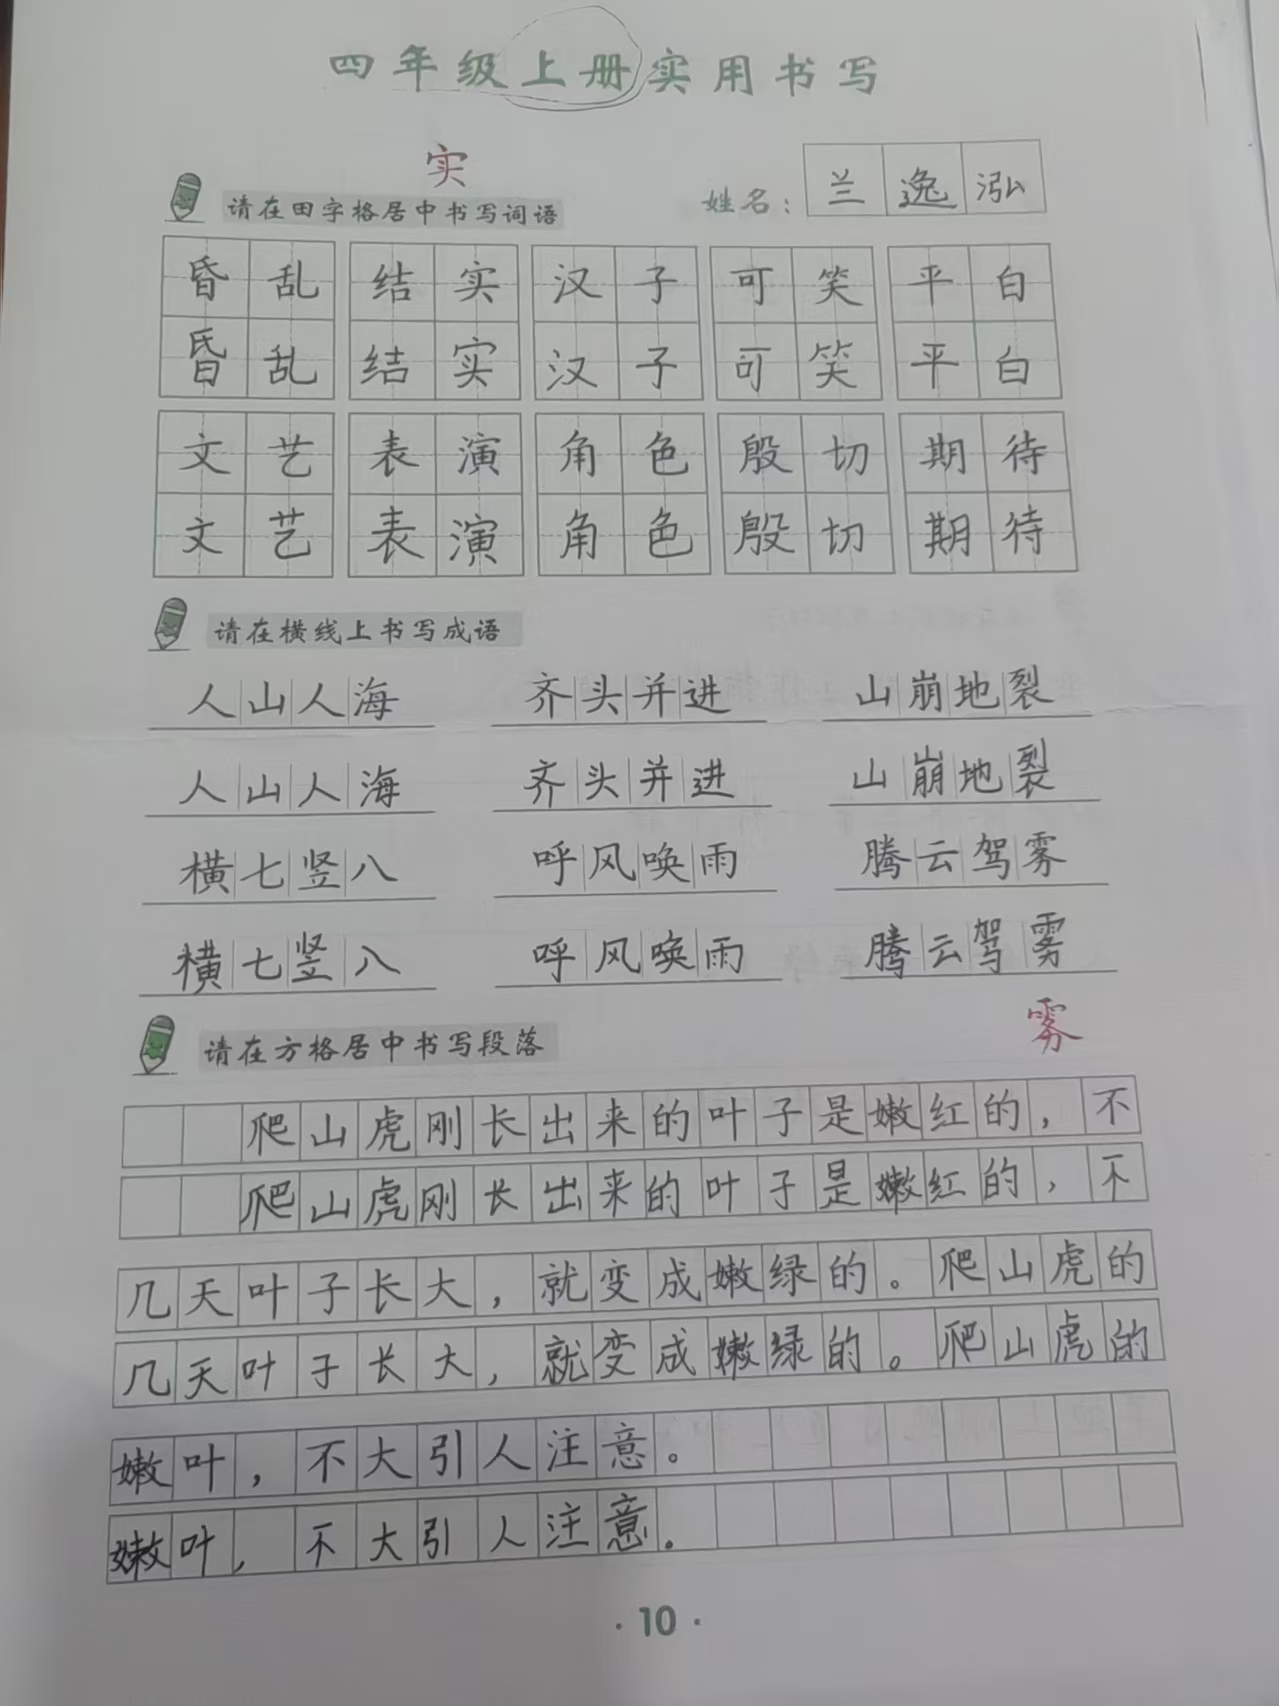 四年级上册实用书写
实
请在田字格居中书写词语 姓名： 兰逸泓
昏乱 结实 汉子 可笑 平白
昏乱 结实 汉子 可笑 平白
文艺 表演 角色 殷切 期待
文艺 表演 角色 殷切 期待
请在横线上书写成语
人山人海 齐头并进 山崩地裂
人山人海 齐头并进 山崩地裂
横七竖八 呼风唤雨 腾云驾雾
横七竖八 呼风唤雨 腾云驾雾
雾
请在方格居中书写段落
爬山虎刚长出来的叶子是嫩红的，不
爬山虎刚长出来的叶子是嫩红的，不
几天叶子长大，就变成嫩绿的。爬山虎的
几天叶子长大，就变成嫩绿的。爬山虎的
嫩叶，不大引人注意。
嫩叶，不大引人注意。
·10·